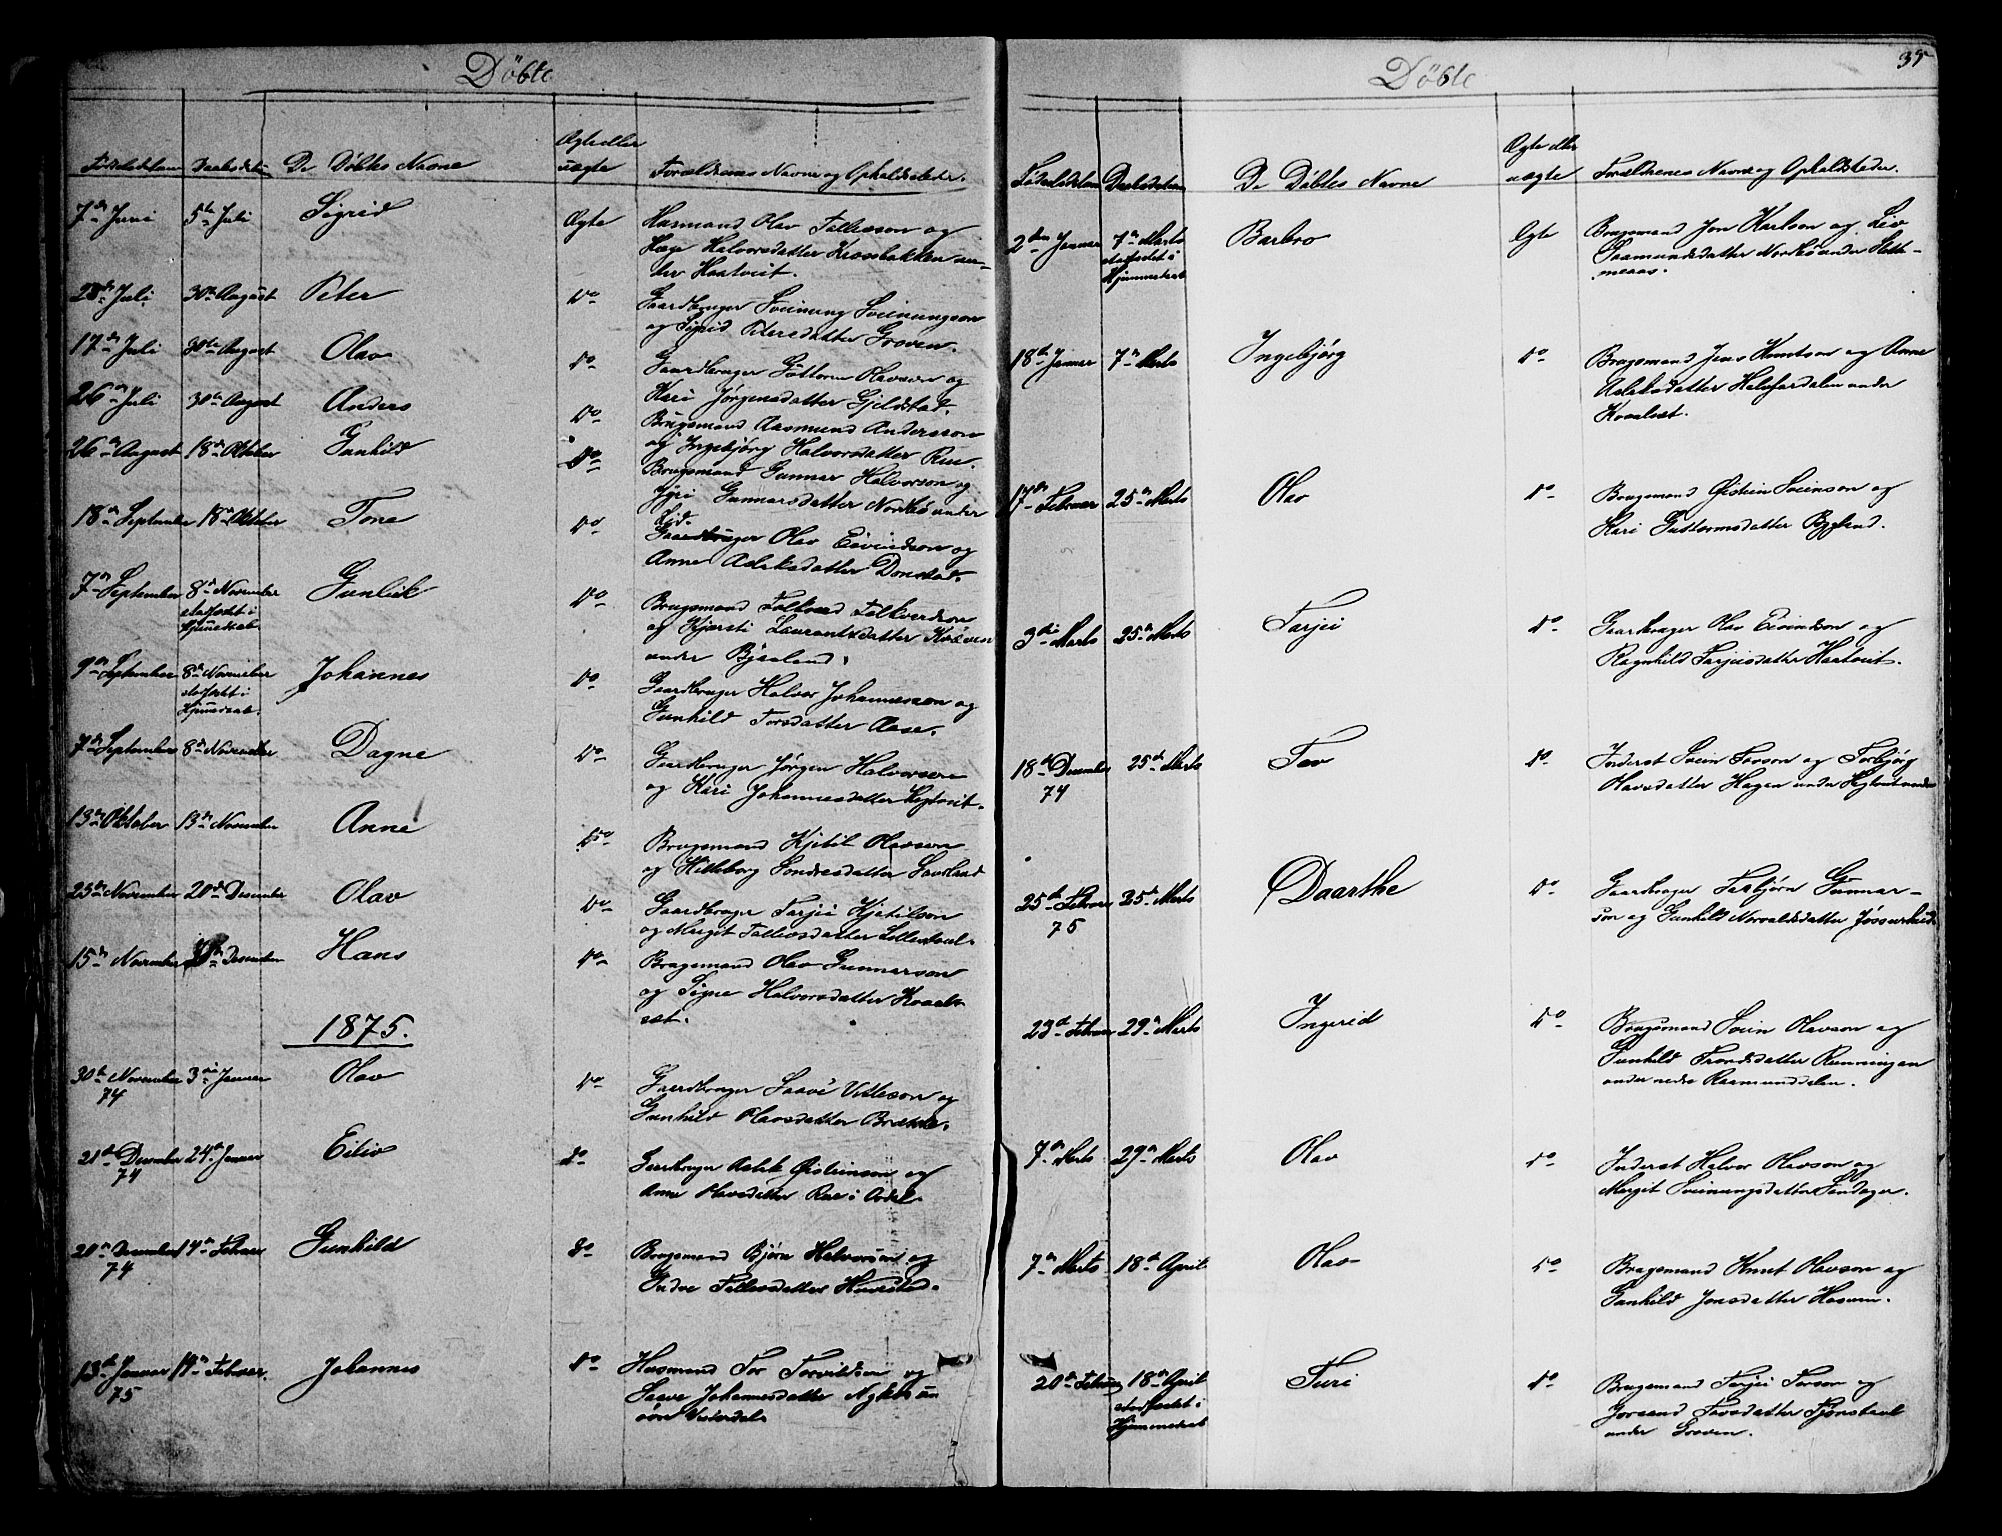 Döbte
Fødselsdatum Daabsdatum De Döbtes Navne Ægte eller uægte Forældrenes Navne og Opholdssteder.
7de Juni 5te Juli Sigrid Ægte Husmand Olav Tallefsson og
Hæge Halvorsdatter Krossbakken un-
der Haatveit.
28de Juli 30te August Peter Do Gaardbruger Sveinung Sveinungson
og Sigrid Petersdatter Groven.
17de Juli 30te August Olav Do Gaardbruger Guttorm Olavson og
Kari Jørgensdatter Gjeldstad.
26de Juli 30te August Anders Do Brugsmand Aasmund Andersson
og Ingebjörg Halvorsdatter Rue.
26de August 18de Oktober Gunhild Do Brugsmand Gunnar Halvorson og
Gunnarsdatter Norbø under
Lid.
18de September 18de Oktober Tone Do Gaardbruger Olav Eivindson og
Anne Asleksdatter Donstad.
7de September 8de November Gunleik Do Brugsmand Folkvard Folkvardson
stadfæstet i og Kjersti Laurantsdatter
Hjemmedaab. under Bjaaland.
9de September 8de November Johannes Do Gaardbruger Halvor Johannesson og
stadfæstet i Gunhild Torsdatter Aase.
Hjemmedaab.
7de September 8de November Dagne Do Gaardbruger Jørgen Halvorson
og Kari Johannesdatter Hegtveit.
13de Oktober 15de November Anne Do Brugsmand Kjetil Olavson
og Hilleborg Sondresdatter
25de November 20de Desember Olav Do Gaardbruger Tarjei Kjetilson
og Margit Tallefsdatter
15de November Desember Hans Do Brugsmand Olav Gunnarson
og Signe Halvorsdatter Kvaale-
sæt.
1875.
30te November 3die Januar Olav Do Gaardbruger Saave Vetleson og
74 Gunhild Olavsdatter Brække.
21de Desember 24de Januar Eiliv Do Gaardbruger Aslak Øisteinson og
74 Anne Olavsdatter Rue i Ordal.
20de Desember 14de Februar Gunhild Do Brugsmand Bjørn Halvorson og
74 Tallefsdatter
13de Januar 14de Februar Johannes Do Husmand Tor Torvildson og
75 Saave Johannesdatter
Vesterdal.
Döbte 35
Fødselsdatum Daabsdatum De Döbtes Navne Ægte eller uægte Forældrenes Navne og Opholdsteder.
2den Januar 7de Marts Barbro Ægte Brugsmand Jon Karlson og Liv
stadfæstet i Saamundsdatter Norbø under
Hjemmedaab
18de Januar 7de Marts Ingebjørg Do Brugsmand Jens Knutson og Anne
Asleksdatter under
Kvalsæt.
17de Februar 25de Marts Olav Do Brugsmand Øistein Sveinson og
Kari Guttormsdatter Bygland.
3die Marts 25de Marts Tarjei Do Gaardbruger Olav Eivindson og
Ragnhild Tarjeisdatter Haatveit.
18de Desember 25de Marts Tov Do Inderst Svein Tovson og Torbjörg
74 Olavsdatter Hagen under
25de Februar 25de Marts Daarthe Do Gaardbruger Torbjørn Gunnar-
75 son og Gunhild Norvaldsdatter
23de Februar 29de Marts Ingerid Do Brugsmand Svein Olavson og
Gunhild Trondsdatter Runningan
under nedre Raamunddalen.
7de Marts 29de Marts Olav Do Inderst Halvor Olavson og
Margit Sveinungsdatter
7de Marts 18de April Olav Do Brugsmand Knut Olavson og
Gunhild Jonsdatter
20de Februar 18de April Turi Do Brugsmand Tarjei Torson og
stadfæstet i Jorand Tovsdatter Tjønstaul
Hjemmedaab under Groven.